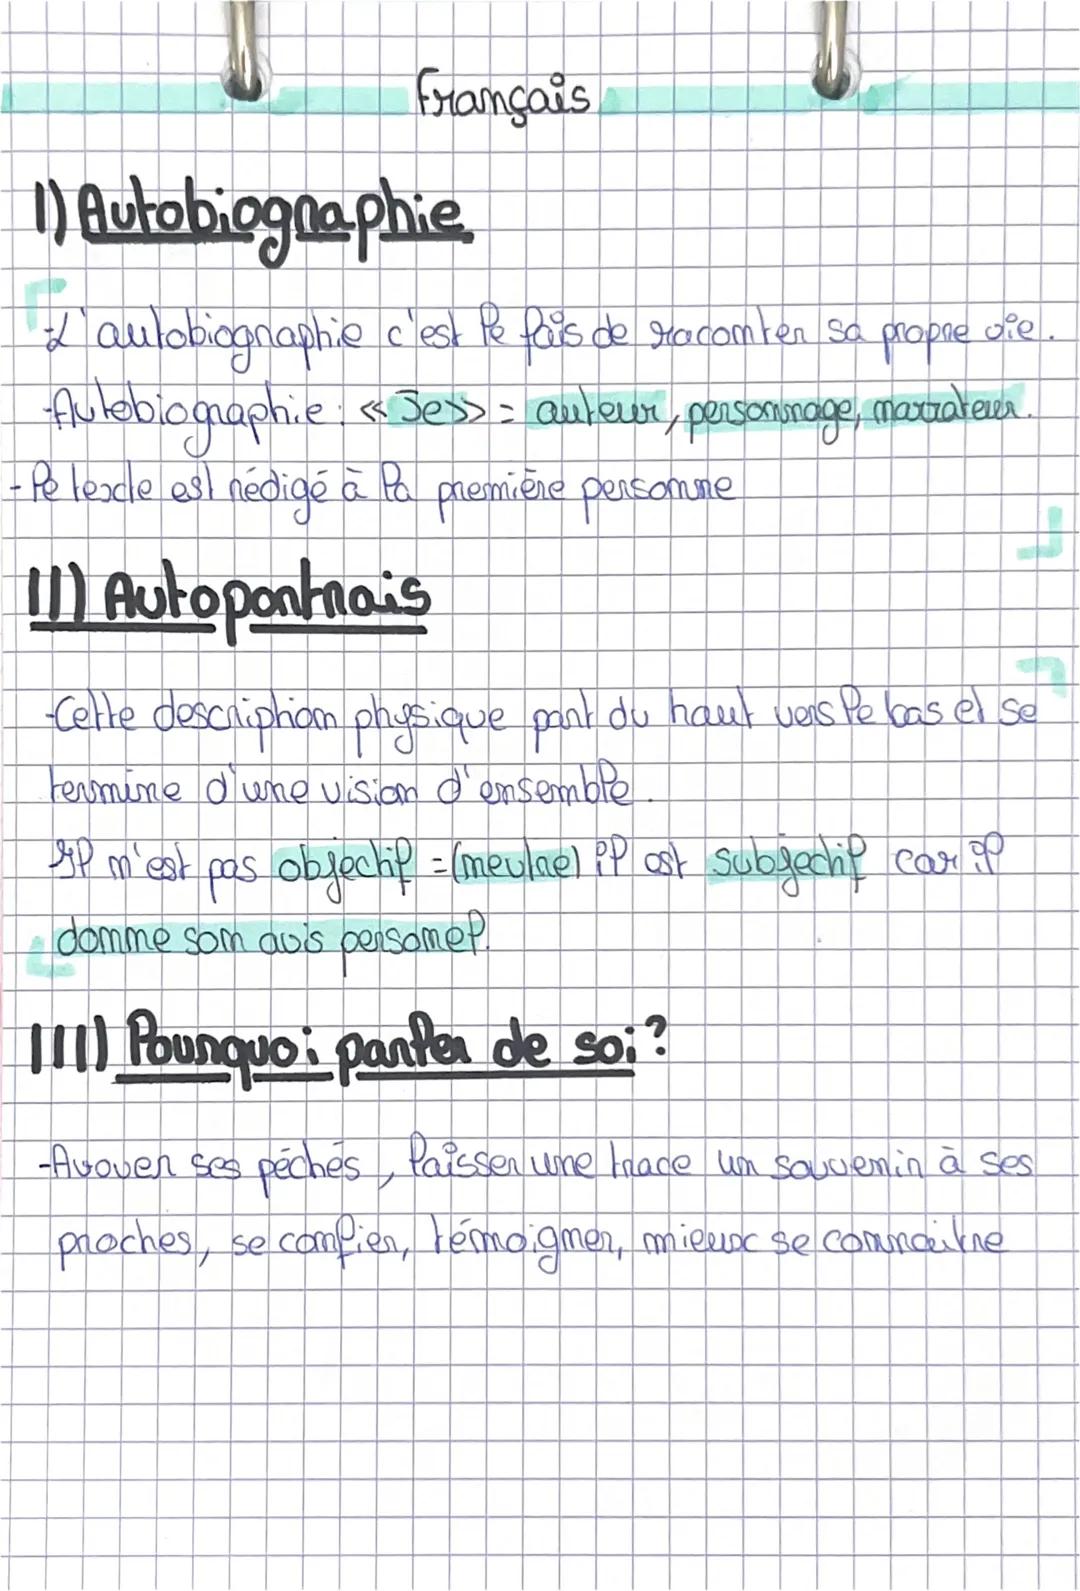 Français
I) Autobiographie
- L'autobiographie c'est le fais de raconter sa propre vie.
- Autobiographie : « Je » = auteur, personnage, narrateur.
- le texte est rédigé à la première personne
II) Autoportrais
- Cette description physique part du haut vers le bas et se
termine d'une vision d'ensemble.
Il n'est pas objectif = (neutre) il est subjectif car il
donne son avis personel.
III) Pourquoi parler de soi ?
- Avouer ses péchés, laisser une trace un souvenir à ses
proches, se confier, témoigner, mieux se connaître